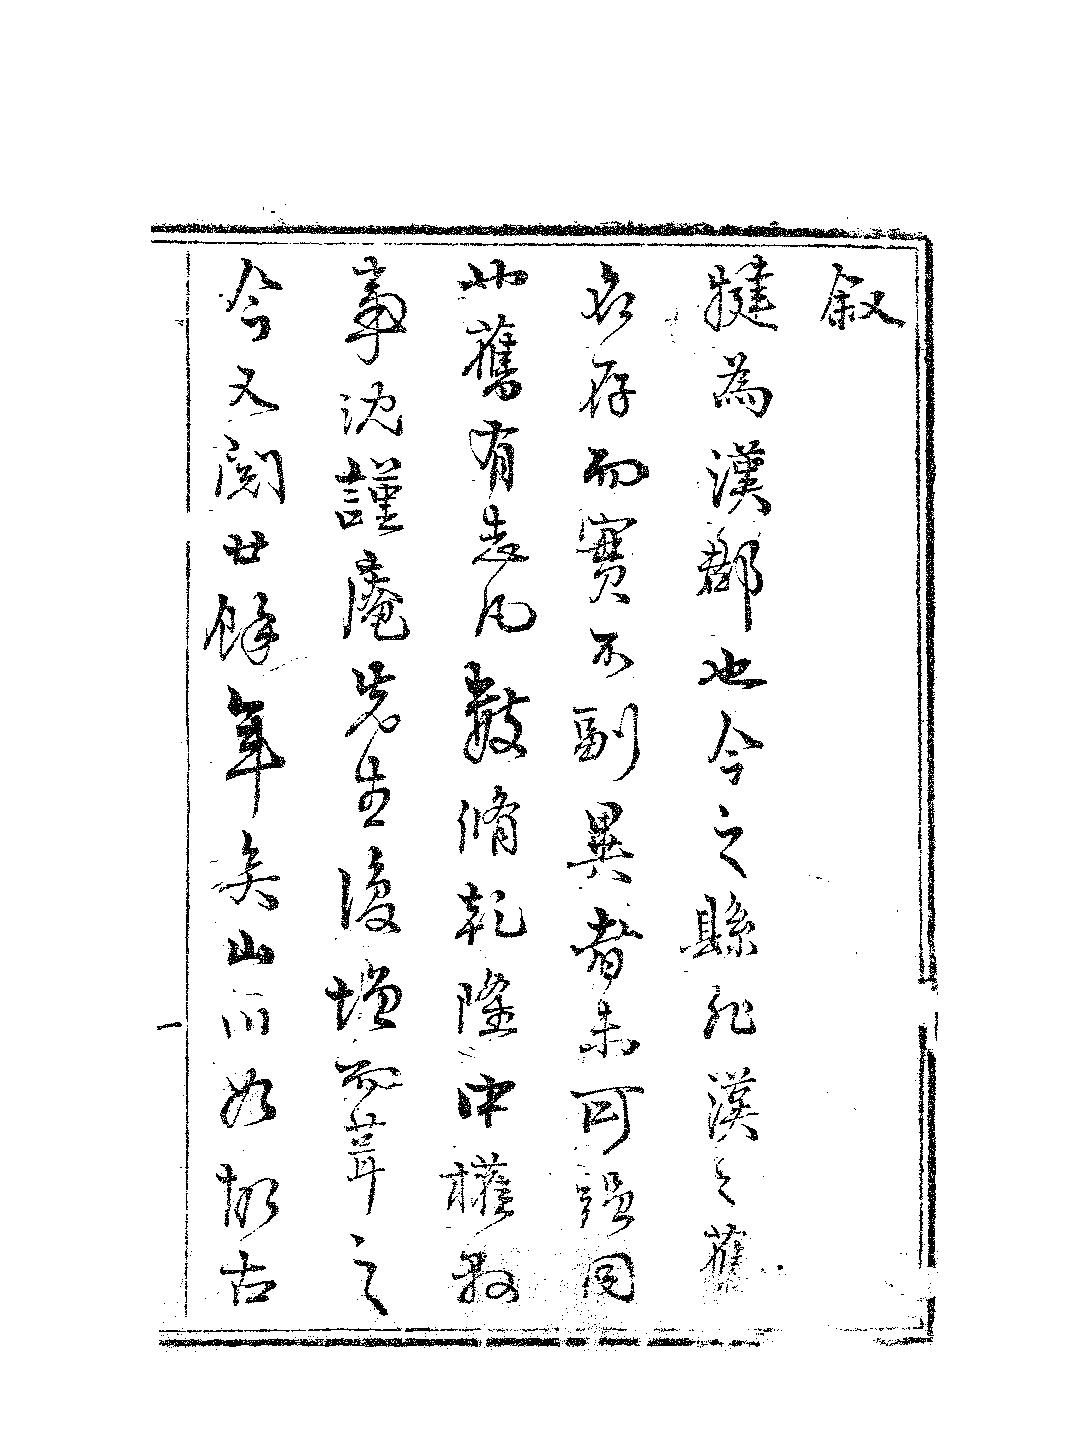 叙
犍為漢郡也今之縣非漢之舊
名存而實不副異者未可強同
也舊有志凡數脩乾隆中權縣
事沈謹庵先生復增而葺之
今又閱廿餘年矣山川如故古
一